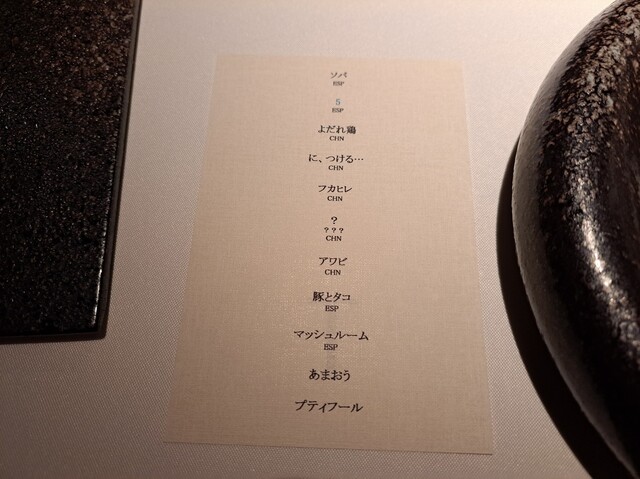 ソパ
ESP
5
ESP
よだれ鶏
CHN
に、つける…
CHN
フカヒレ
CHN
?
???
CHN
アワビ
CHN
豚とタコ
ESP
マッシュルーム
ESP
あまおう
プティフール